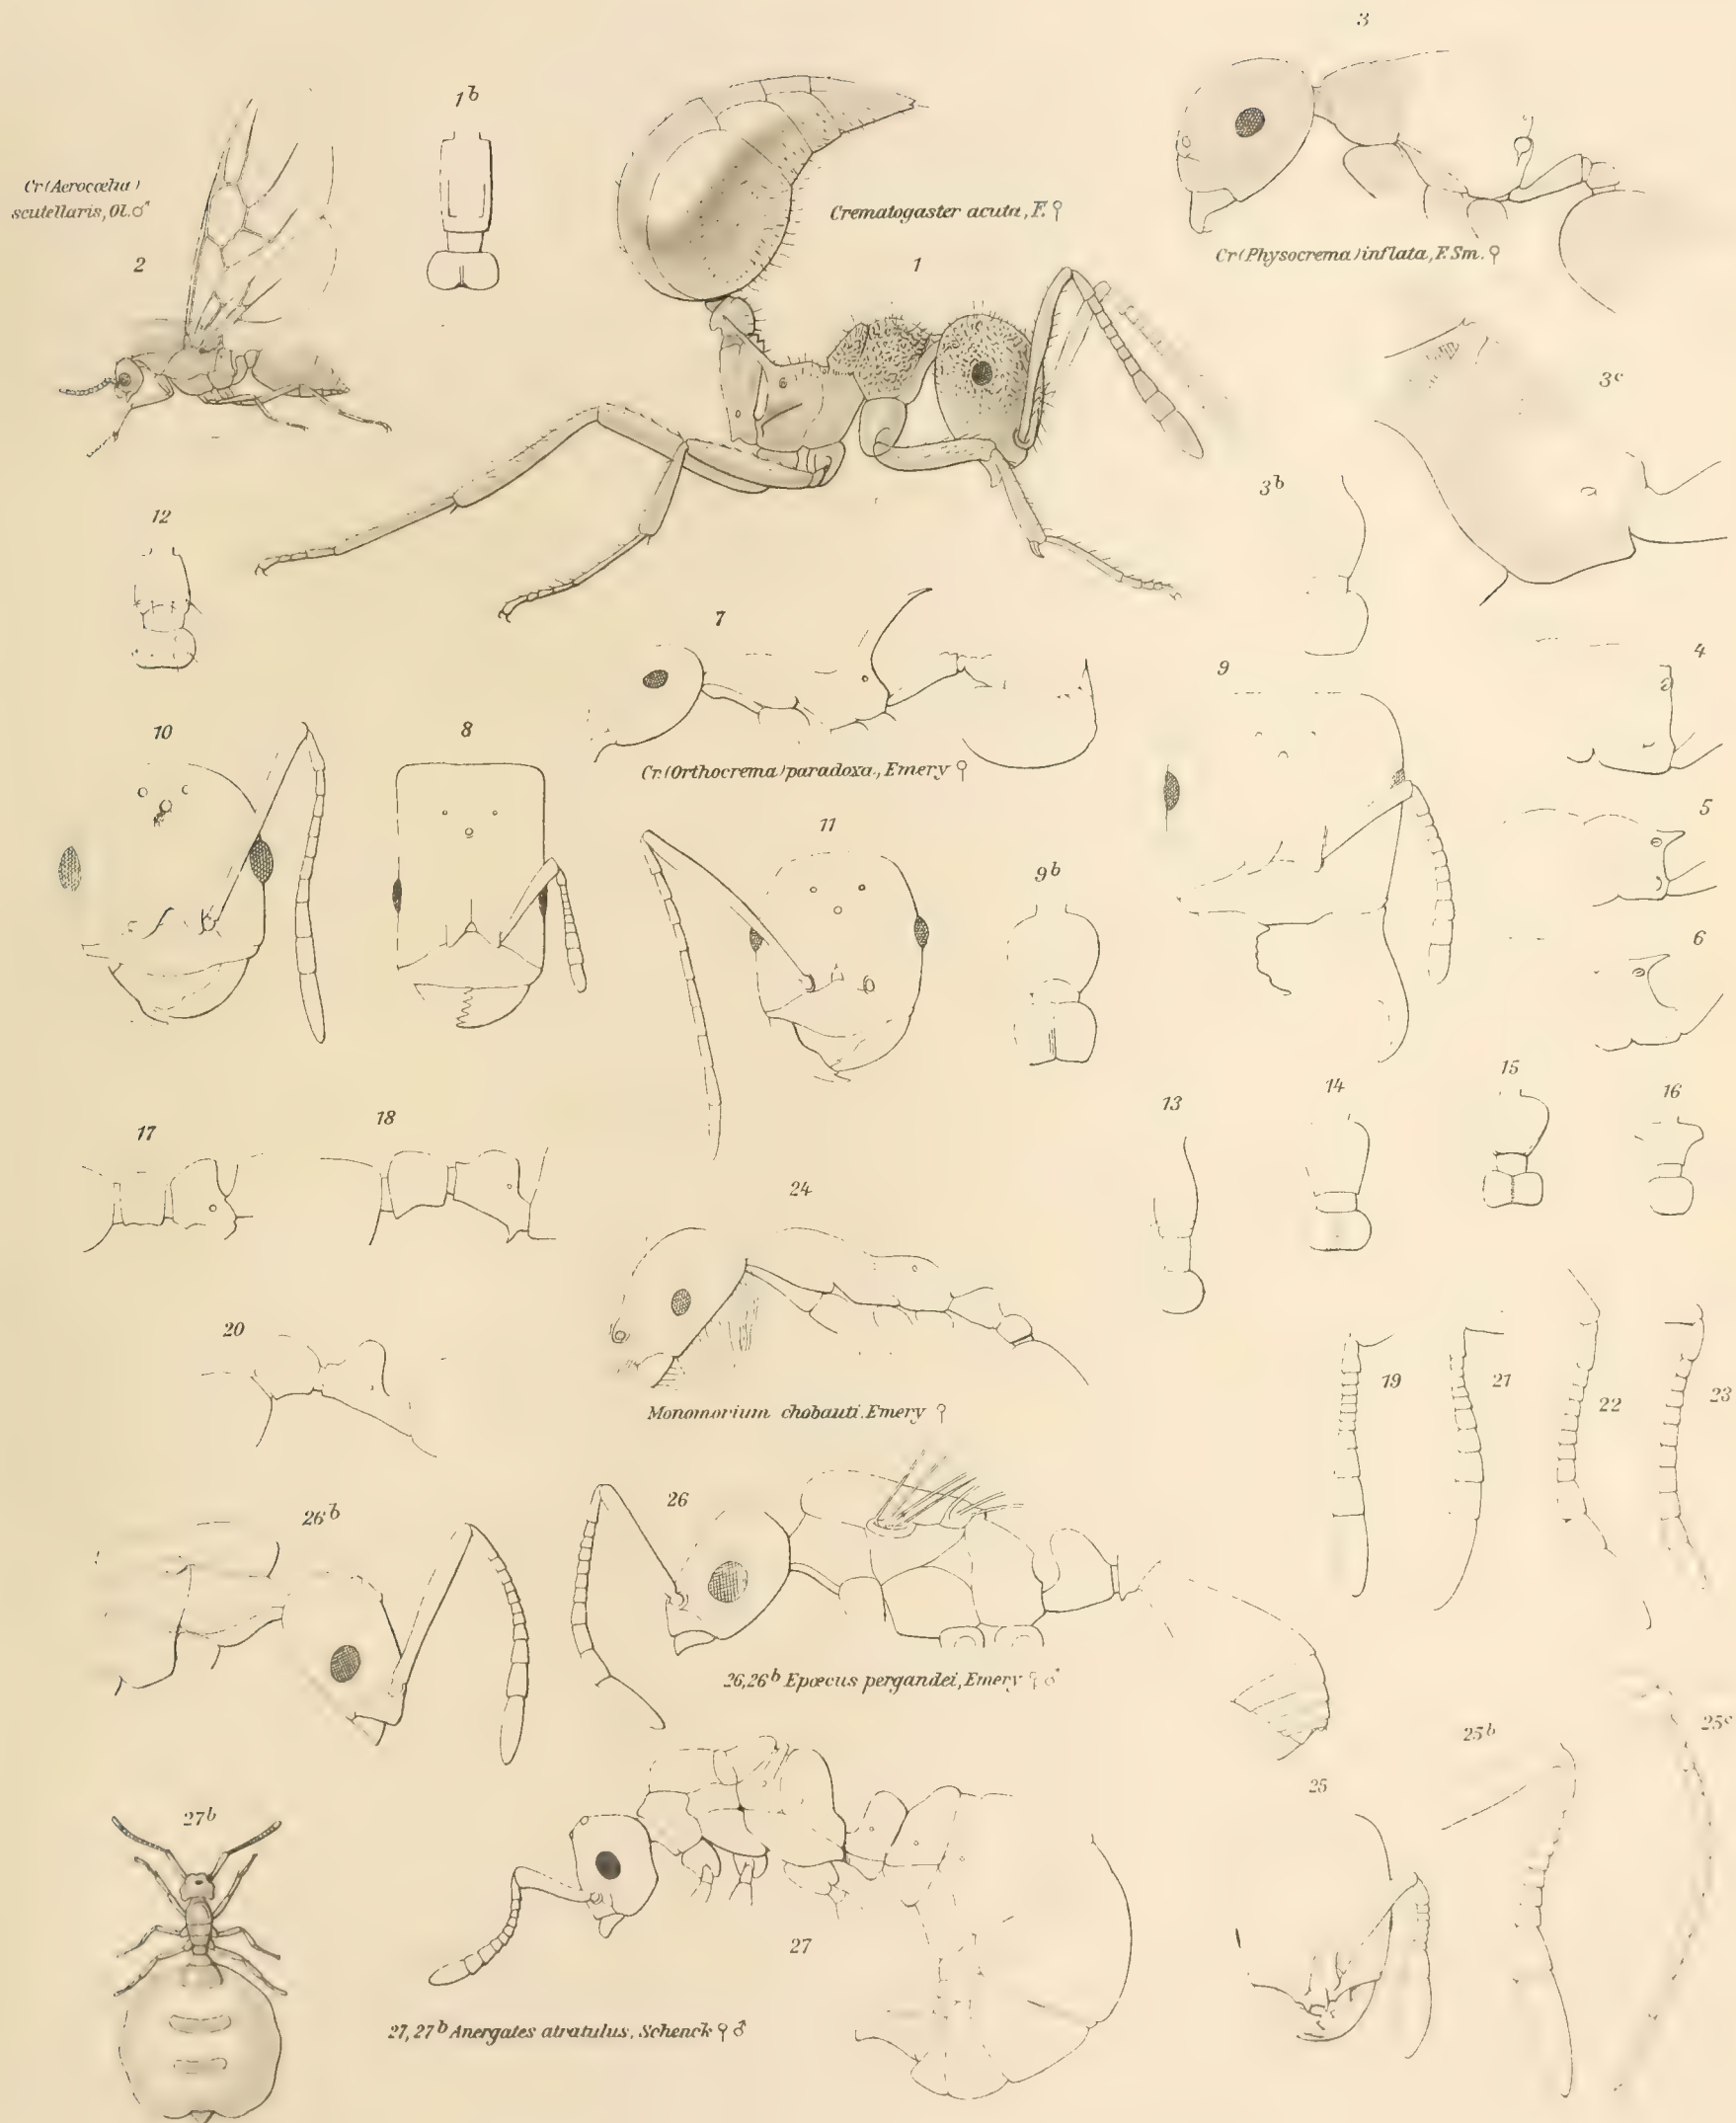 3
1b
Cr(Acrocœlia)
scutellaris, Ol.♂
Crematogaster acuta, F.☿
2
1
Cr(Physocrema)inflata, F. Sm.☿
3c
12
3b
7
9
4
10
8
Cr.(Orthocrema)paradoxa., Emery ☿
11
5
9b
6
15
13
14
16
17
18
24
20
19
21
22
23
Monomorium chobauti. Emery ☿
26b
26
26,26b Epœcus pergandei, Emery ♀ ♂
25b
25c
25
27b
27
27, 27b Anergates atratulus, Schenck ♀ ♂